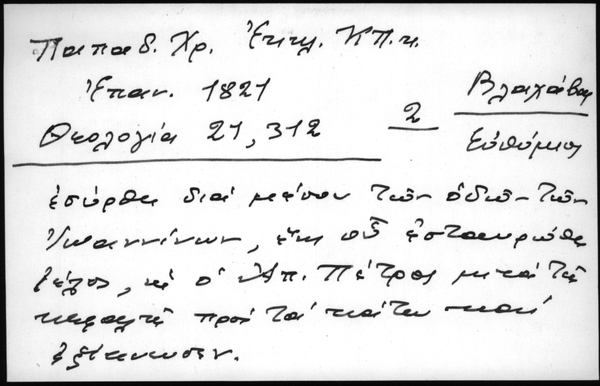 Παπαδ. Χρ. Ἐκκλ. ΚΠ.
Ἐπαν. 1821
Θεολογία 21, 312
2
Βλαχάβας
Εὐθύμιος
ἐσύρθη διὰ μέσου τῶν ὁδῶν τῶν
Ἰωαννίνων, ἕως οὗ ἐσταυρώθη
τέλος, ὡς ὁ Ἀπ. Πέτρος μετὰ τῆς
κεφαλῆς πρὸς τὰ κάτω καὶ